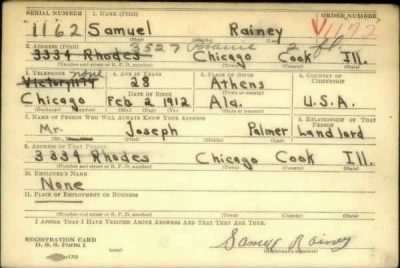 SERIAL NUMBER 1. NAME (Print) ORDER NUMBER
1162 Samuel Rainey V1172
(First) (Middle) (Last)
2. ADDRESS (Print) 3527 Prairie 2 fl
3334 Rhodes Chicago Cook Ill.
(Number and street or R. F. D. number) (Town) (County) (State)
3. TELEPHONE none 4. AGE IN YEARS 5. PLACE OF BIRTH 6. COUNTRY OF CITIZENSHIP
28 Athens
DATE OF BIRTH (Town or county)
Chicago Feb 2 1912 Ala. U.S.A.
(Exchange) (Number) (Mo.) (Day) (Yr.) (State or country)
7. NAME OF PERSON WHO WILL ALWAYS KNOW YOUR ADDRESS 8. RELATIONSHIP OF THAT PERSON
Mr. Joseph Palmer Landlord
(Mr., Mrs., Miss) (First) (Middle) (Last)
9. ADDRESS OF THAT PERSON
3334 Rhodes Chicago Cook Ill.
(Number and street or R. F. D. number) (Town) (County) (State)
10. EMPLOYER'S NAME
None
11. PLACE OF EMPLOYMENT OR BUSINESS
(Number and street or R. F. D. number) (Town) (County) (State)
I AFFIRM THAT I HAVE VERIFIED ABOVE ANSWERS AND THAT THEY ARE TRUE.
REGISTRATION CARD
D. S. S. FORM 1
Samuel Rainey
(Registrant's signature)